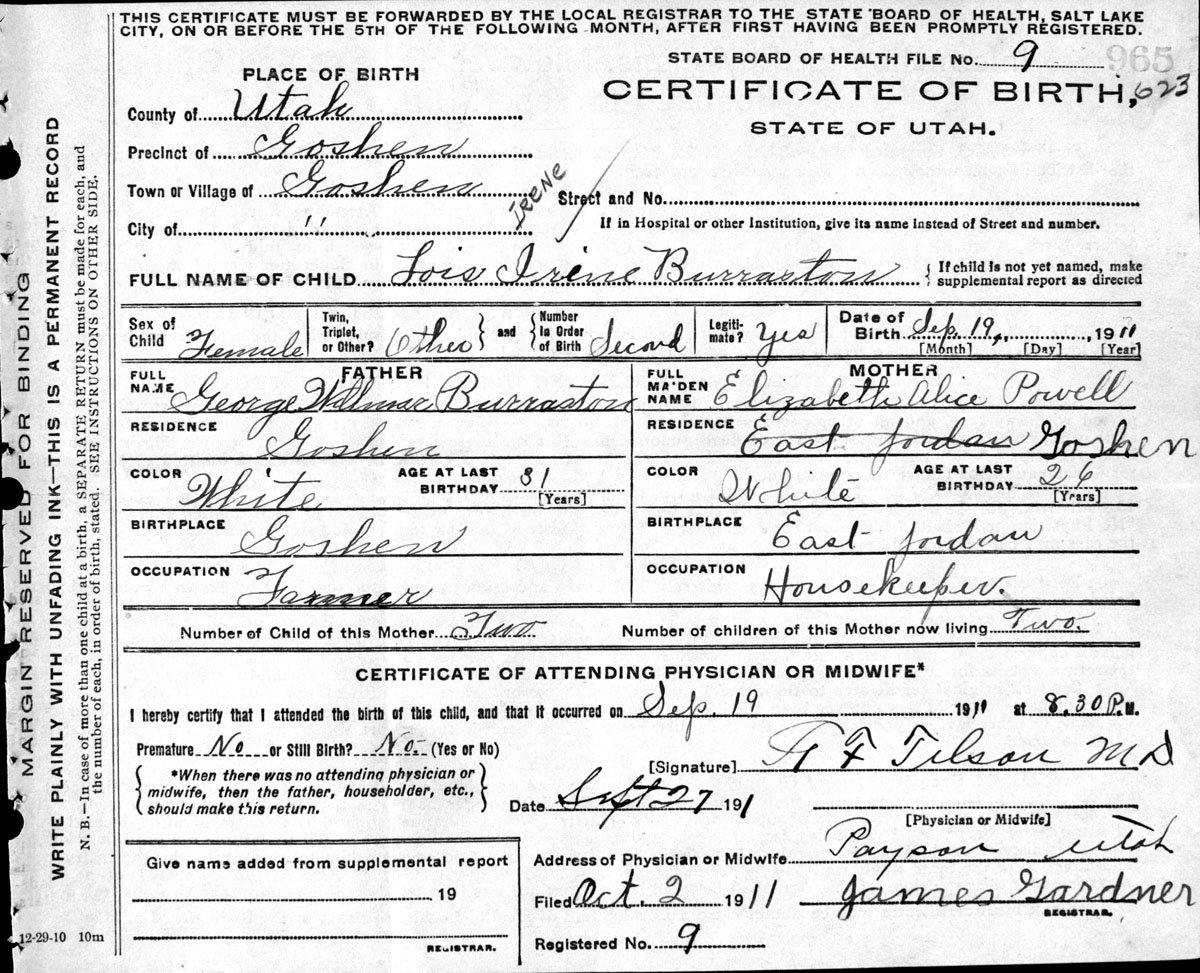 THIS CERTIFICATE MUST BE FORWARDED BY THE LOCAL REGISTRAR TO THE STATE BOARD OF HEALTH, SALT LAKE
CITY, ON OR BEFORE THE 5TH OF THE FOLLOWING MONTH, AFTER FIRST HAVING BEEN PROMPTLY REGISTERED.
STATE BOARD OF HEALTH FILE No. 9 965
PLACE OF BIRTH
CERTIFICATE OF BIRTH, 623
STATE OF UTAH.
County of Utah
Precinct of Goshen
Town or Village of Goshen
IRENE
Street and No.
City of "
If in Hospital or other Institution, give its name instead of Street and number.
FULL NAME OF CHILD Lois Irene Burraston { If child is not yet named, make
supplemental report as directed
Sex of Child Female
Twin, Triplet, or Other? Other } and { Number in Order of Birth Second
Legiti-mate? Yes
Date of Birth Sep. 19, 1911
[Month] [Day] [Year]
FATHER
FULL NAME George Willmar Burraston
RESIDENCE Goshen
COLOR White AGE AT LAST BIRTHDAY 31 [Years]
BIRTHPLACE Goshen
OCCUPATION Farmer
MOTHER
FULL MAIDEN NAME Elizabeth Alice Powell
RESIDENCE East Jordan Goshen
COLOR White AGE AT LAST BIRTHDAY 26 [Years]
BIRTHPLACE East Jordan
OCCUPATION Housekeeper.
Number of Child of this Mother Two Number of children of this Mother now living Two
CERTIFICATE OF ATTENDING PHYSICIAN OR MIDWIFE*
I hereby certify that I attended the birth of this child, and that it occurred on Sep. 19 1911 at 8.30 P.M.
Premature No or Still Birth? No. (Yes or No)
*When there was no attending physician or
midwife, then the father, householder, etc.,
should make this return.
[Signature] F Tilson MD
Date Sept 27 1911
[Physician or Midwife]
Address of Physician or Midwife Payson Utah
Filed Oct. 2 1911 James Gardner
REGISTRAR.
Registered No. 9
Give name added from supplemental report
19
REGISTRAR.
12-29-10 10m
MARGIN RESERVED FOR BINDING
WRITE PLAINLY WITH UNFADING INK—THIS IS A PERMANENT RECORD
N. B.—In case of more than one child at a birth, a SEPARATE RETURN must be made for each, and
the number of each, in order of birth, stated. SEE INSTRUCTIONS ON OTHER SIDE.